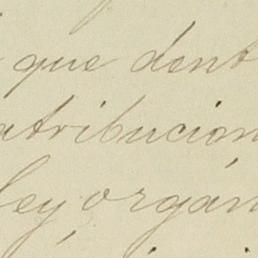 que dent
atribucion
ley orgán